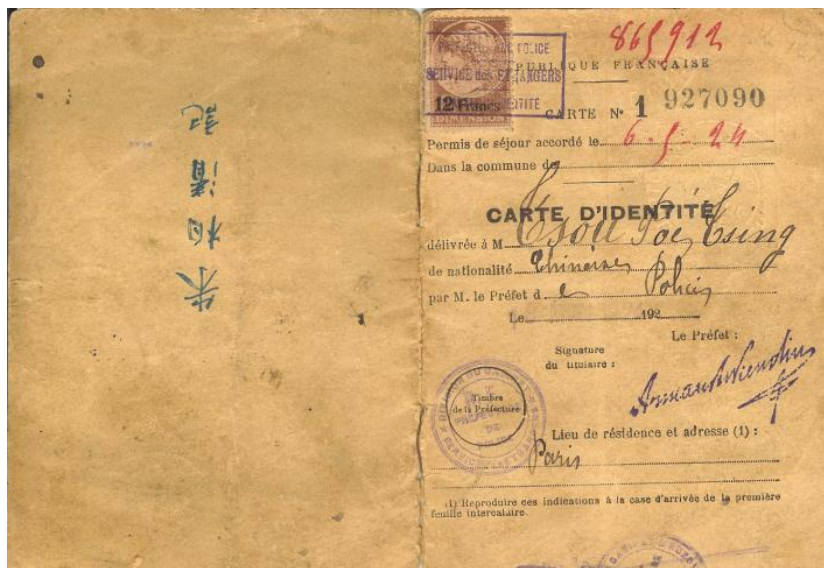 朱柏清記
865912
PRÉFECTURE DE POLICE
SERVICE des ETRANGERS
12 Francs
DIMENSION
RÉPUBLIQUE FRANÇAISE
CARTE N° 1 927090
Permis de séjour accordé le 6-5-24
Dans la commune de
CARTE D'IDENTITÉ
délivrée à M Tsou Poe Tsing
de nationalité Chinoise
par M. le Préfet de Police
Le 192
Le Préfet :
Signature
du titulaire :
Timbre
de la Préfecture
Lieu de résidence et adresse (1) :
Paris
(1) Reproduire ces indications à la case d'arrivée de la première
feuille intercalaire.